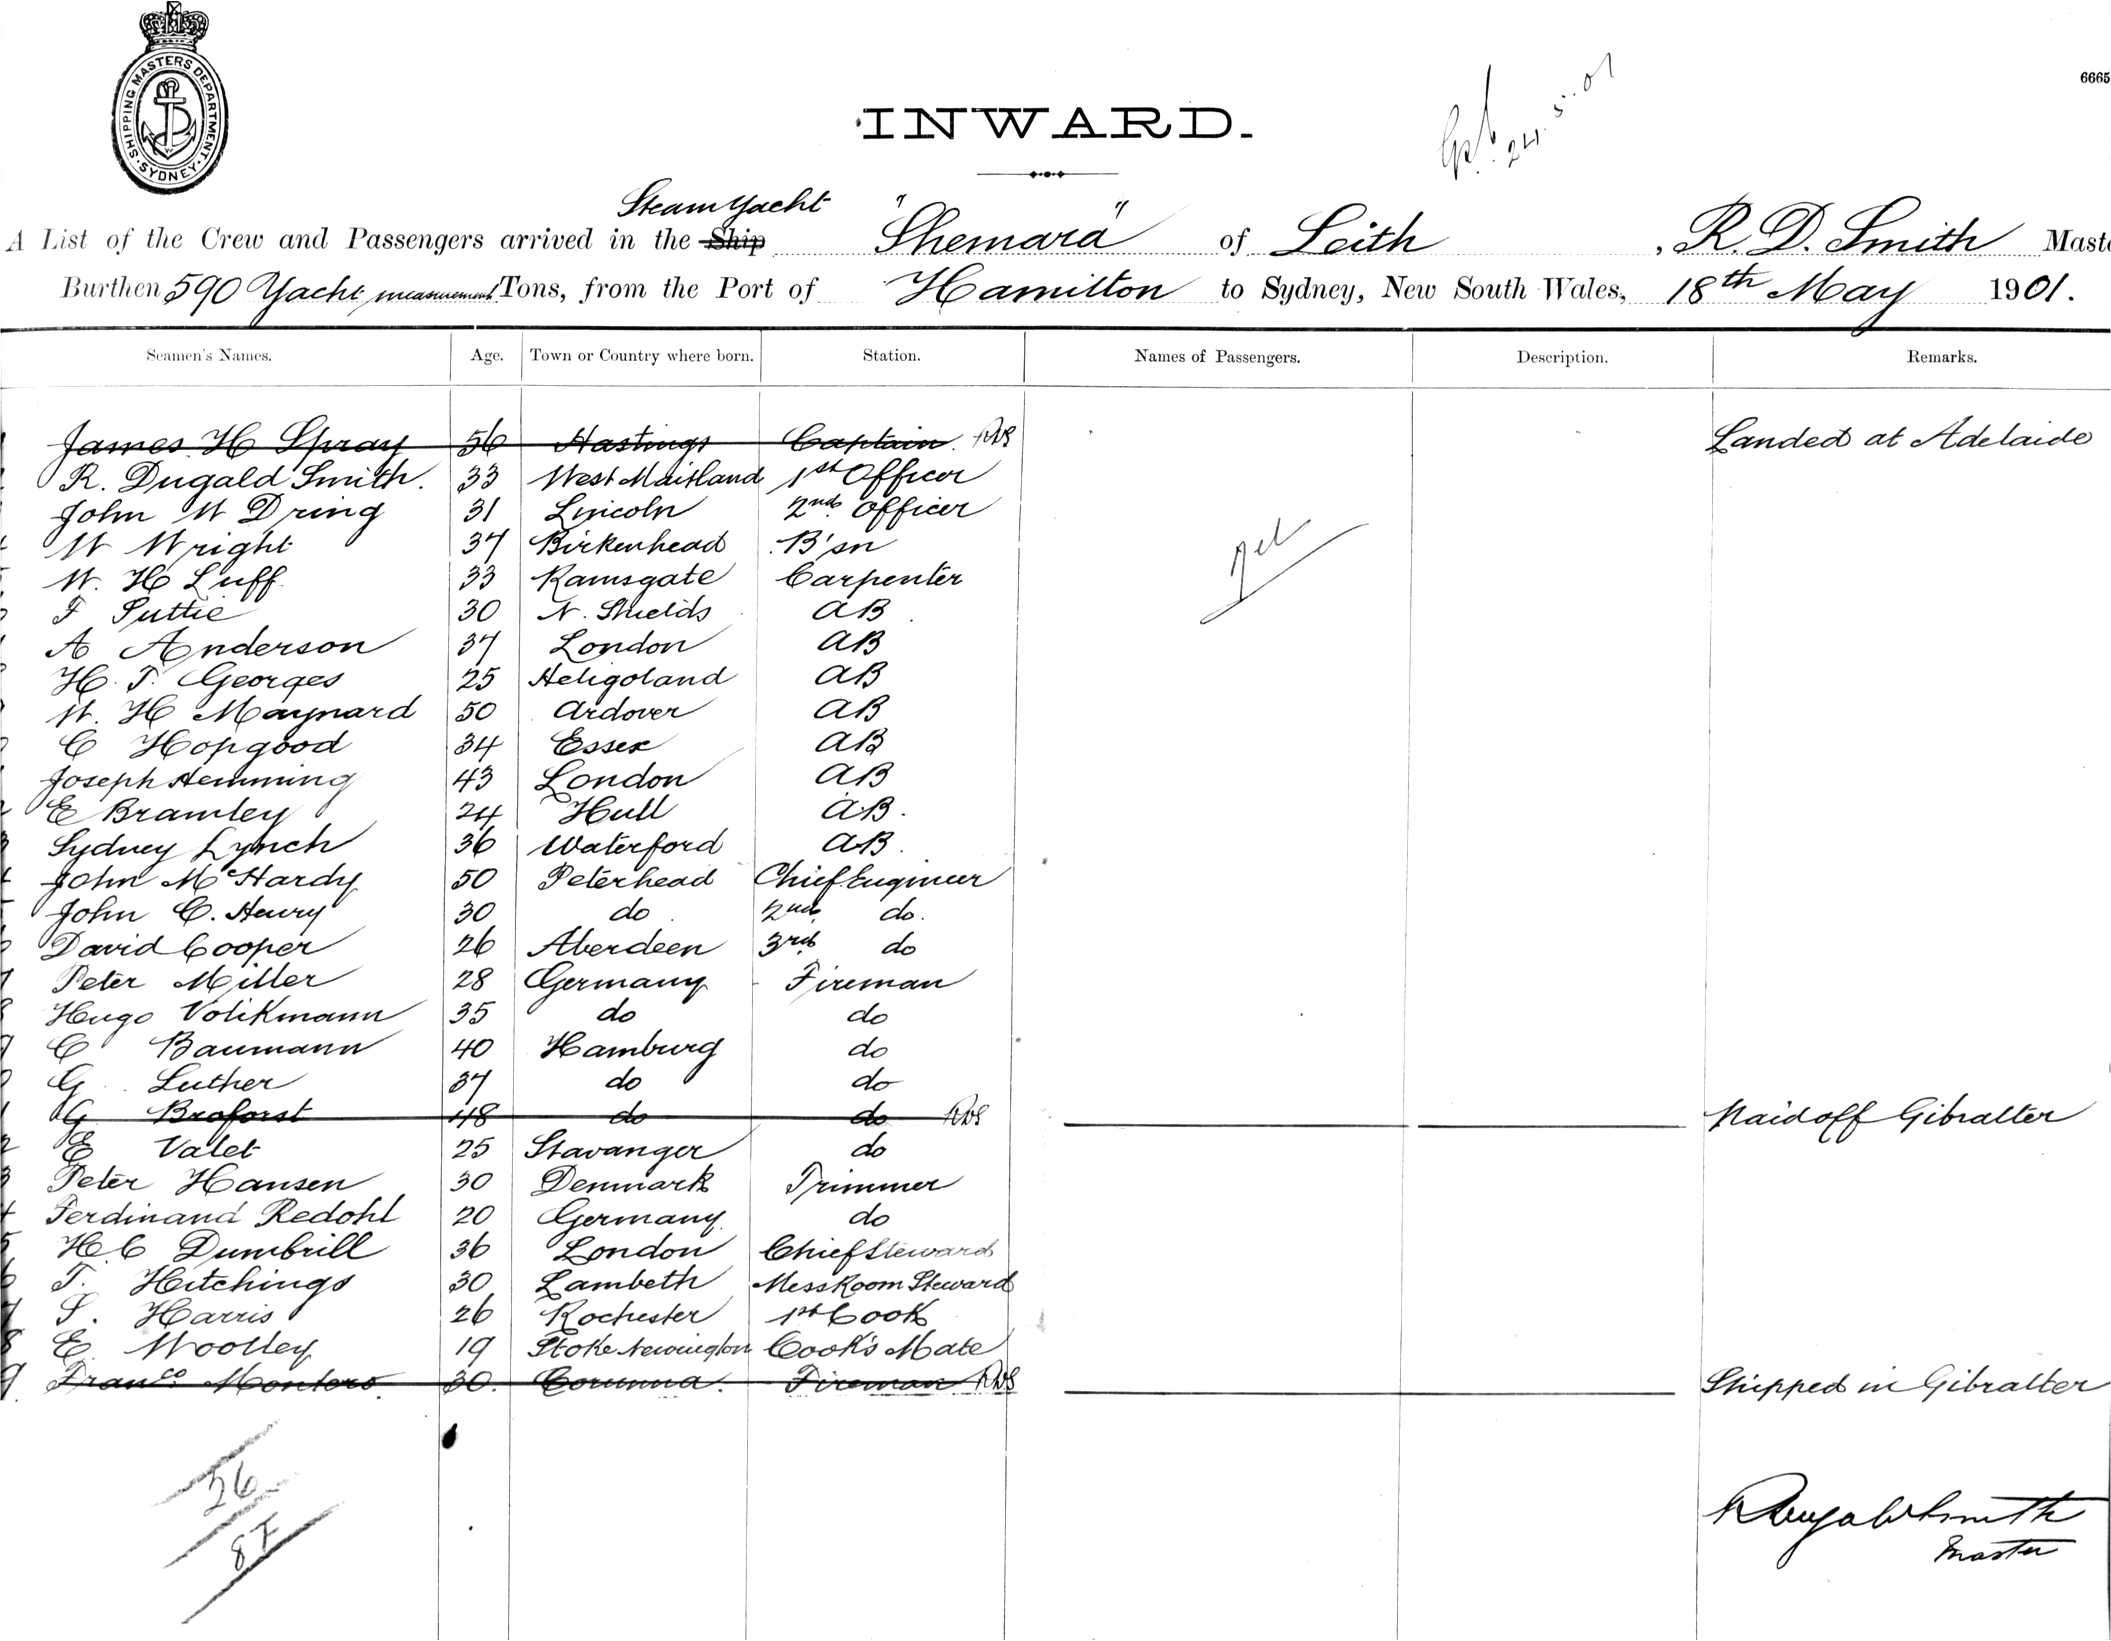 SHIPPING MASTERS DEPARTMENT. SYDNEY
6665
INWARD.
24.5.01
Steam Yacht
A List of the Crew and Passengers arrived in the Ship "Shemara" of Leith, R. D. Smith Maste
Burthen 590 Yacht measurement Tons, from the Port of Hamilton to Sydney, New South Wales, 18th May 1901.
Seamen's Names. Age. Town or Country where born. Station. Names of Passengers. Description. Remarks.
James H Spray 56 Hastings Captain. RDS Landed at Adelaide
R. Dugald Smith. 33 West Maitland 1st Officer
John W Dring 31 Lincoln 2nd Officer
W Wright 37 Birkenhead B'sn
W. H Luff 33 Ramsgate Carpenter
F Suttie 30 N. Shields AB
A Anderson 37 London AB
H. T. Georges 25 Heligoland AB
W. H Maynard 50 Ardover AB
C Hopgood 34 Essex AB
Joseph Hemming 43 London AB
E Bramley 24 Hull AB.
Sydney Lynch 36 Waterford AB.
John McHardy 50 Peterhead Chief Engineer
John C. Henry 30 do 2nd do.
David Cooper 26 Aberdeen 3rd do
Peter Miller 28 Germany Fireman
Hugo Volikmann 35 do do
C Baumann 40 Hamburg do
G Luther 37 do do
G Broforst 48 do do RDS Paid off Gibralter
E Valet 25 Stavanger do
Peter Hansen 30 Denmark Trimmer
Ferdinand Redohl 20 Germany do
H C Dumbrill 36 London Chief Steward
T. Hitchings 30 Lambeth Mess Room Steward
S. Harris 26 Rochester 1st Cook
E. Woolley 19 Stoke Newington Cook's Mate
9 Franco Montero 30. Corunna. Fireman RDS Shipped in Gibralter
26
R Dugald Smith
Master